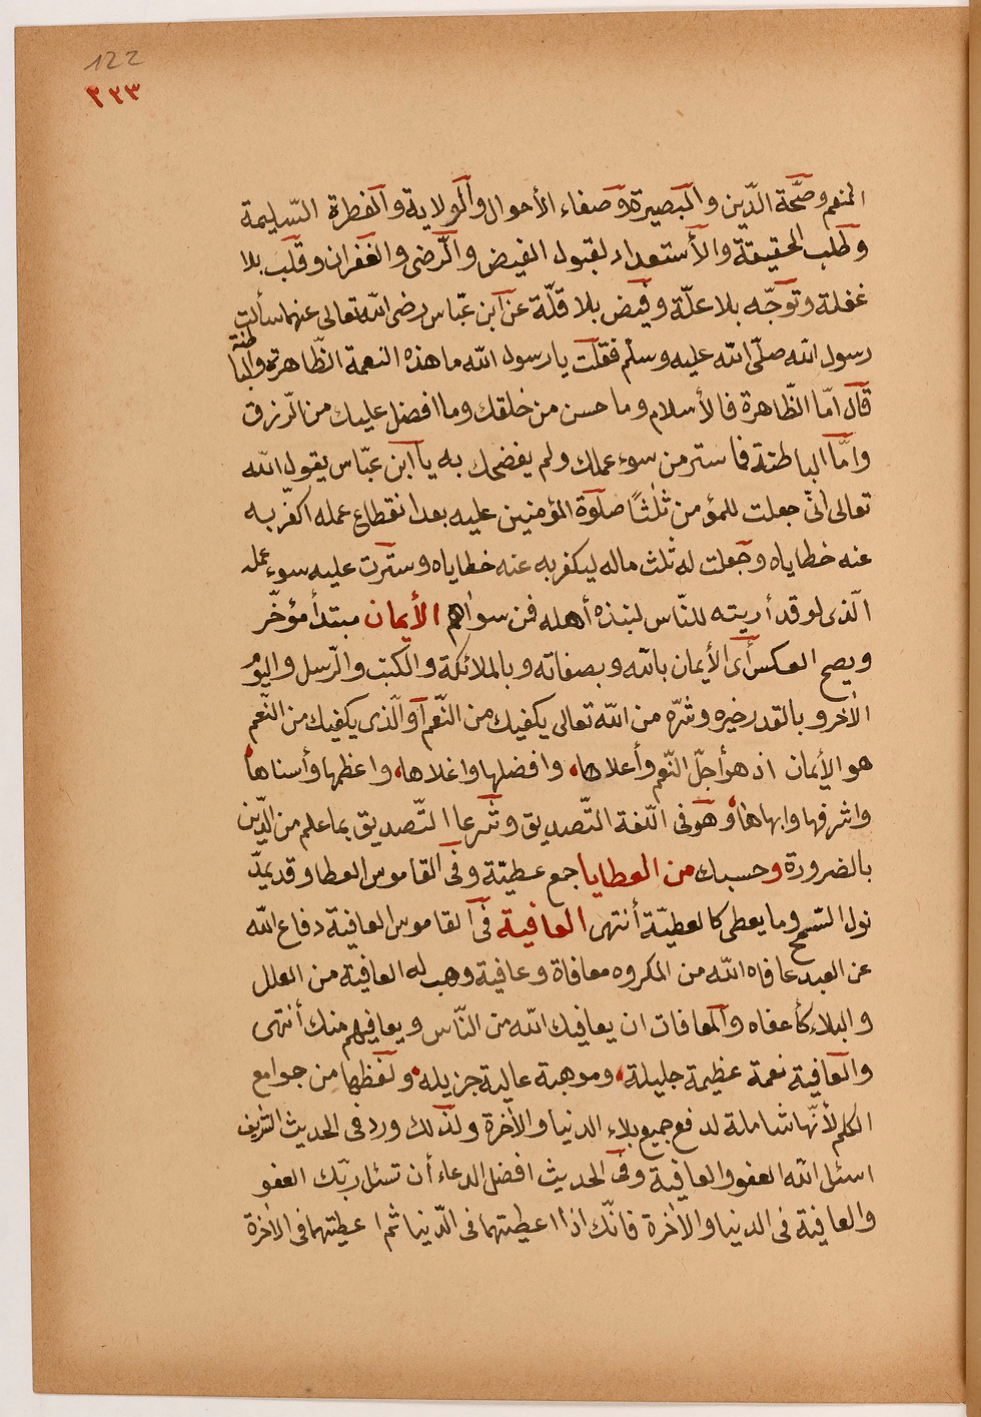 122
٢٣٣
المنعم وصحّة الدّين والبصيرة وصفاء الأحوال والولاية والفطرة السّليمة
وطلب الحقيقة والأستعداد لقبول الفيض والرّضى والغفران وقلب بلا
غفلة وتوجّه بلا علّة وفيض بلا قلّة عن ابن عبّاس رضى الله تعالى عنهما سألت
رسول الله صلّى الله عليه وسلّم فقلت يا رسول الله ما هذه النعمة الظّاهرة والباطنة
قال امّا الظّاهرة فالأسلام وما حسن من خلقك وما افضل عليك من الرّزق
وامّا الباطنة فما ستر من سوء عملك ولم يفضحك به يا ابن عبّاس يقول الله
تعالى انّى جعلت للمؤمن ثلٰثًا صلوة المؤمنين عليه بعد انقطاع عمله اكفّر به
عنه خطاياه وجعلت له ثلث ماله ليكفر به عنه خطاياه وسترت عليه سوء عمله
الّذى لو قد أريته للنّاس لنبذه أهله فمن سواهم الأيمان مبتدأ مؤخّر
ويصح العكس أى الأيمان بالله وبصفاته وبالملائكة والكتب والرّسل واليوم
الأخر وبالقدر خيره وشرّه من الله تعالى يكفيك من النّعم أو الّذى يكفيك من النّعم
هو الأيمان اذ هو أجلّ النّعم وأعلاها، وافضلها واغلاها، واعظمها وأسناها،
واشرفها وابهاها، وهو فى اللّغة التّصديق وشرعا التّصديق بما علم من الدّين
بالضرورة وحسبك من العطايا جمع عطيّة وفى القاموس العطا وقد يمدّ
نول السّمح وما يعطى كالعطيّة أنتهى العافية فى القاموس العافية دفاع الله
عن العبد عافاه الله من المكروه معافاة وعافية وهب له العافية من العلل
والبلاء كأعفاه والمعافات ان يعافيك الله من النّاس ويعافيهم منك أنتهى
والعافية نعمة عظيمة جليلة، وموهبة عالية جزيله، ولفظها من جوامع
الكلم لأنّها شاملة لدفع جميع بلاء الدنيا والأخرة ولذلك ورد فى الحديث الشريف
اسئل الله العفو والعافية وفى الحديث افضل الدعاء أن تسئل ربّك العفو
والعافية فى الدنيا والأخرة فانّك اذا اعطيتهما فى الدّنيا ثم اعطيتهما فى الأخرة